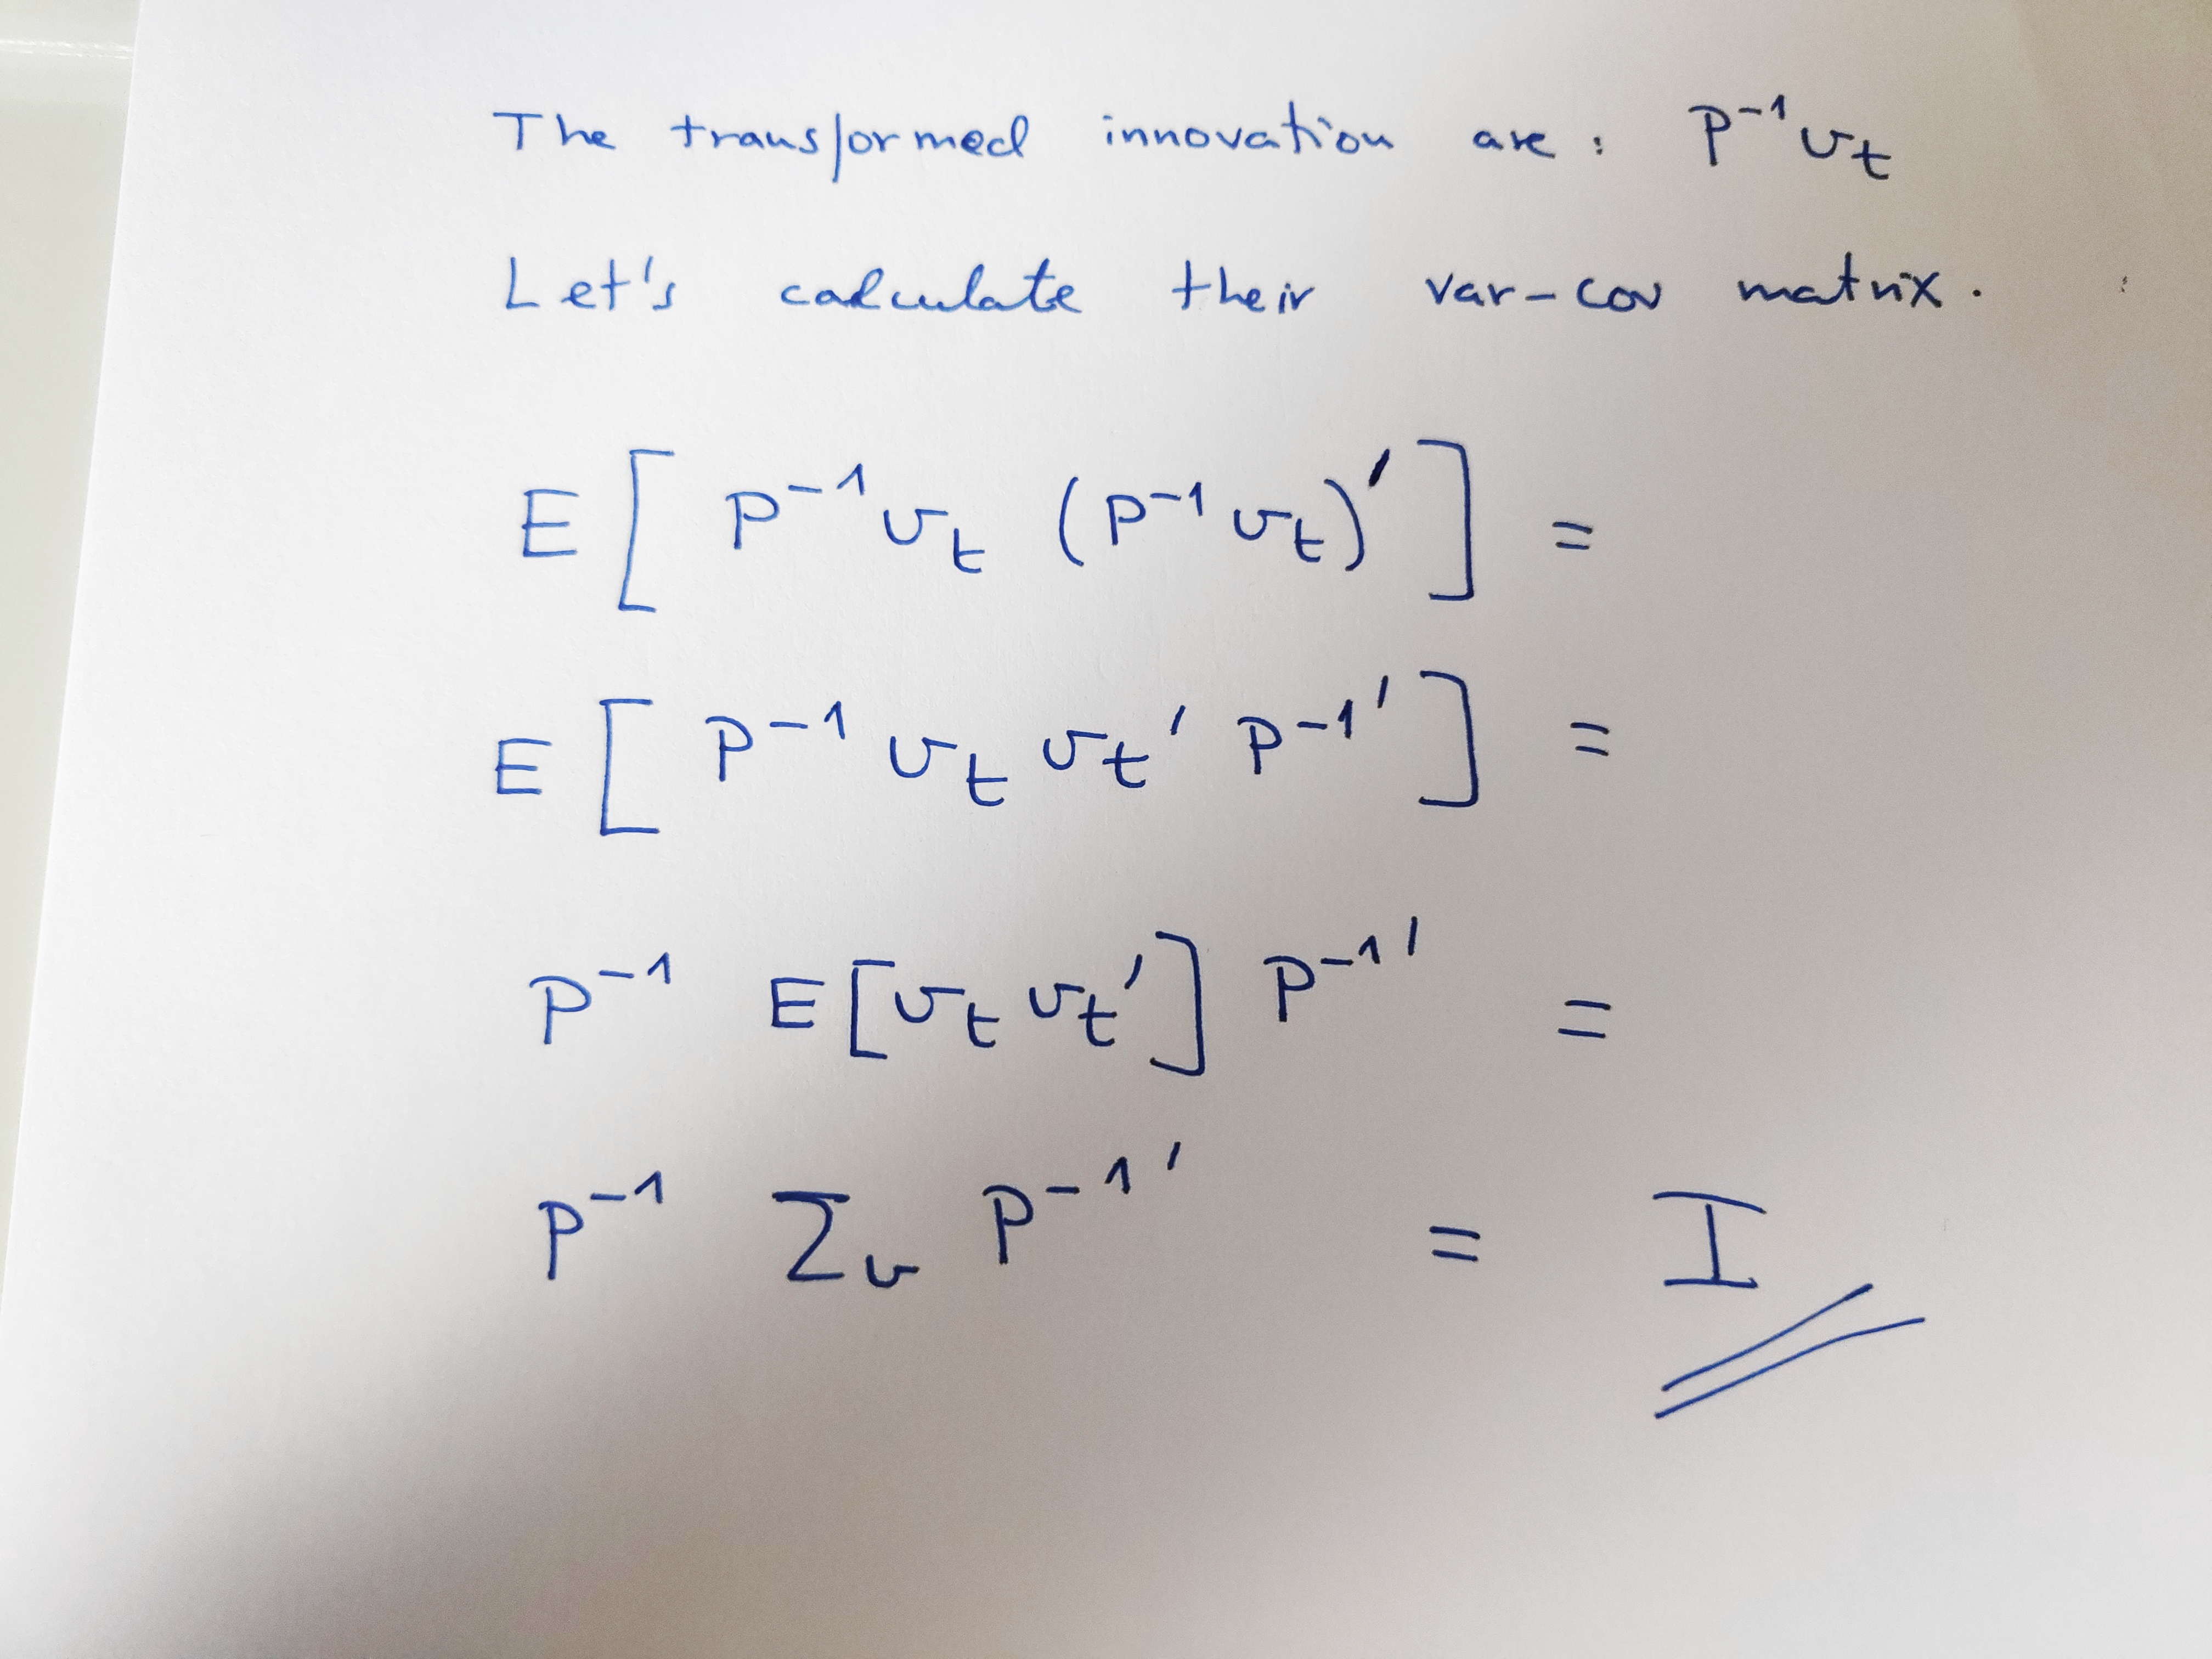 The transformed innovation are: P⁻¹ υₜ
Let's calculate their var-cov matrix.
E [ P⁻¹ υₜ (P⁻¹ υₜ)′ ] =
E [ P⁻¹ υₜ υₜ′ P⁻¹′ ] =
P⁻¹ E [υₜ υₜ′] P⁻¹′ =
P⁻¹ Σᵤ P⁻¹′ = I